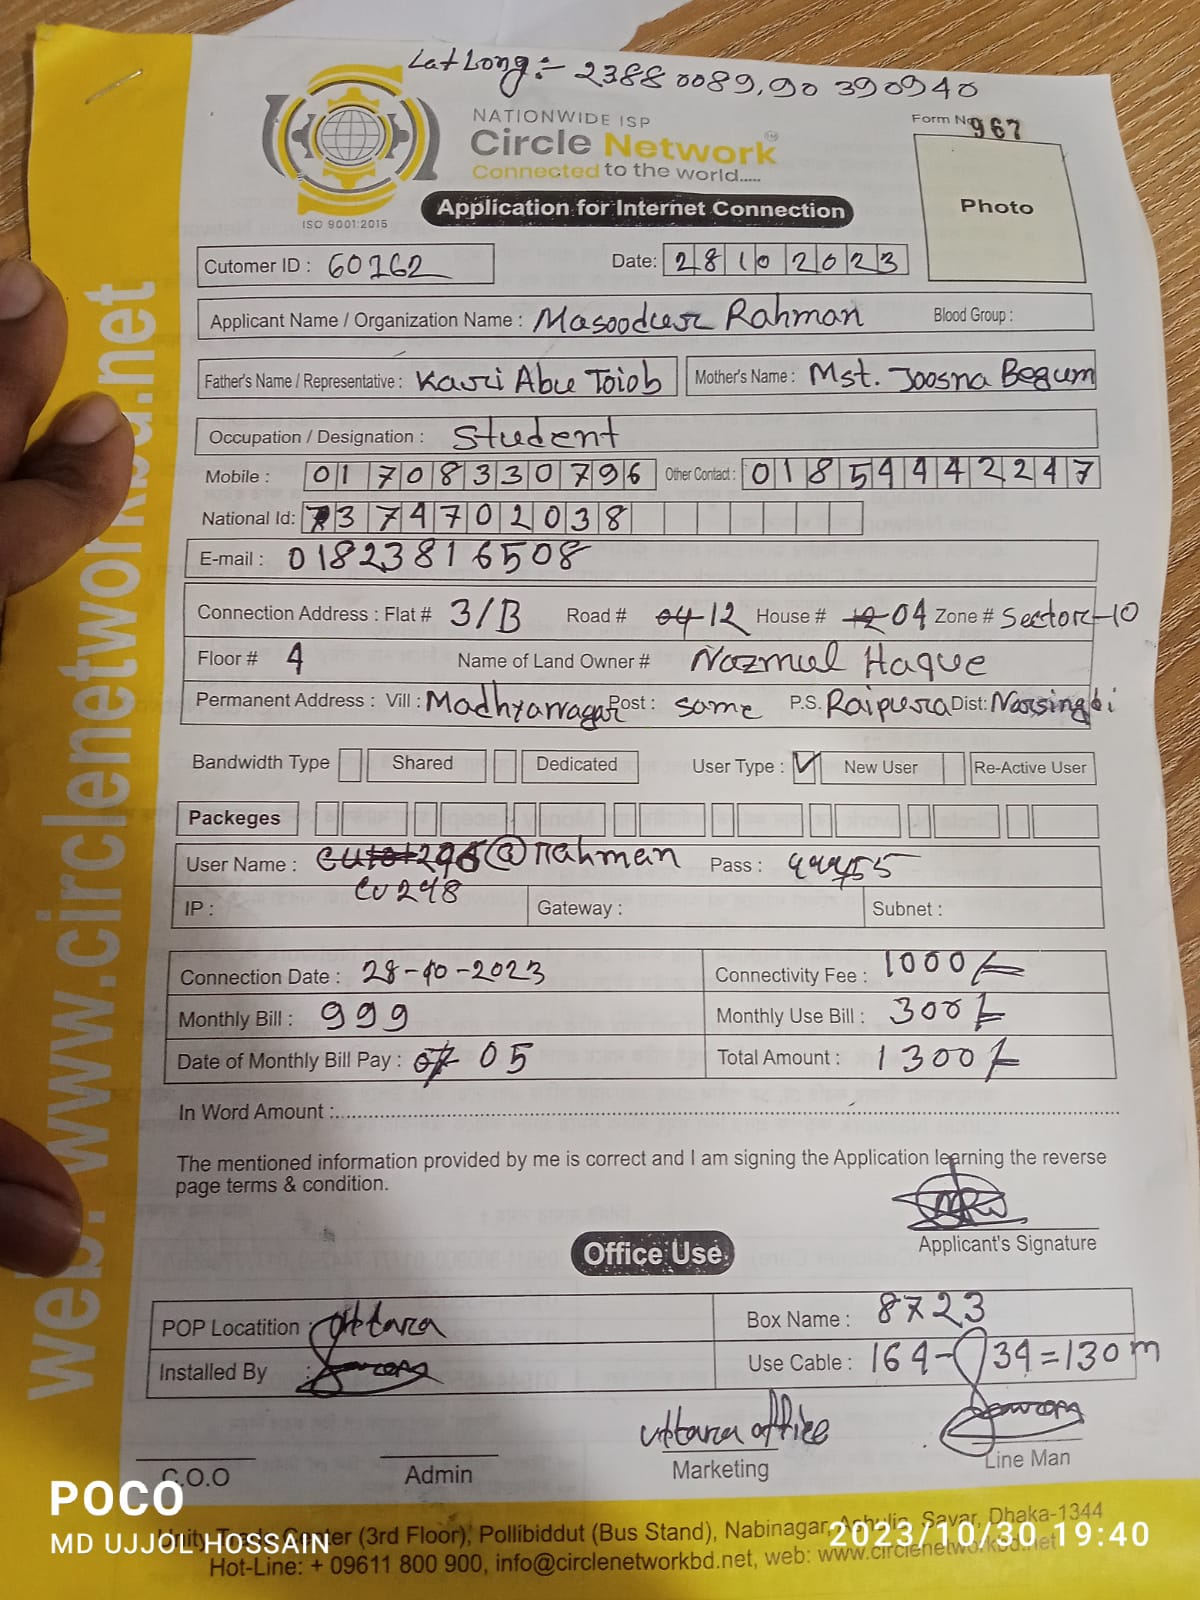 Lat Long:- 23880089, 90390940
NATIONWIDE ISP
Circle Network
Connected to the world.....
ISO 9001:2015
Form No 967
Application for Internet Connection
Photo
Cutomer ID : 60162
Date: 28 10 2023
Applicant Name / Organization Name : Masoodur Rahman Blood Group :
Father's Name / Representative : Kazi Abu Toiob Mother's Name : Mst. Joosna Begum
Occupation / Designation : Student
Mobile : 01708330796 Other Contact : 01854442247
National Id: 7374702038
E-mail : 01823816508
Connection Address : Flat # 3/B Road # 04 12 House # 12 04 Zone # Sector-10
Floor # 4 Name of Land Owner # Nazmul Haque
Permanent Address : Vill : Madhyanagar Post : same P.S. Raipura Dist: Narsingdi
Bandwidth Type Shared Dedicated User Type : ✓ New User Re-Active User
Packeges
User Name : @rahman Pass :
CU298
IP : Gateway : Subnet :
Connection Date : 28-10-2023 Connectivity Fee : 1000/-
Monthly Bill : 999 Monthly Use Bill : 300/-
Date of Monthly Bill Pay : 07 05 Total Amount : 1300/-
In Word Amount :
The mentioned information provided by me is correct and I am signing the Application learning the reverse
page terms & condition.
Applicant's Signature
Office Use
POP Locatition : Uttara Box Name : 8723
Installed By : Use Cable : 164-34=130m
Uttara office
C.O.O Admin Marketing Line Man
Unity Trade Center (3rd Floor), Pollibiddut (Bus Stand), Nabinagar, Ashulia, Savar, Dhaka-1344
Hot-Line: + 09611 800 900, info@circlenetworkbd.net, web: www.circlenetworkbd.net
web: www.circlenetworkbd.net
POCO
MD UJJOL HOSSAIN
2023/10/30 19:40